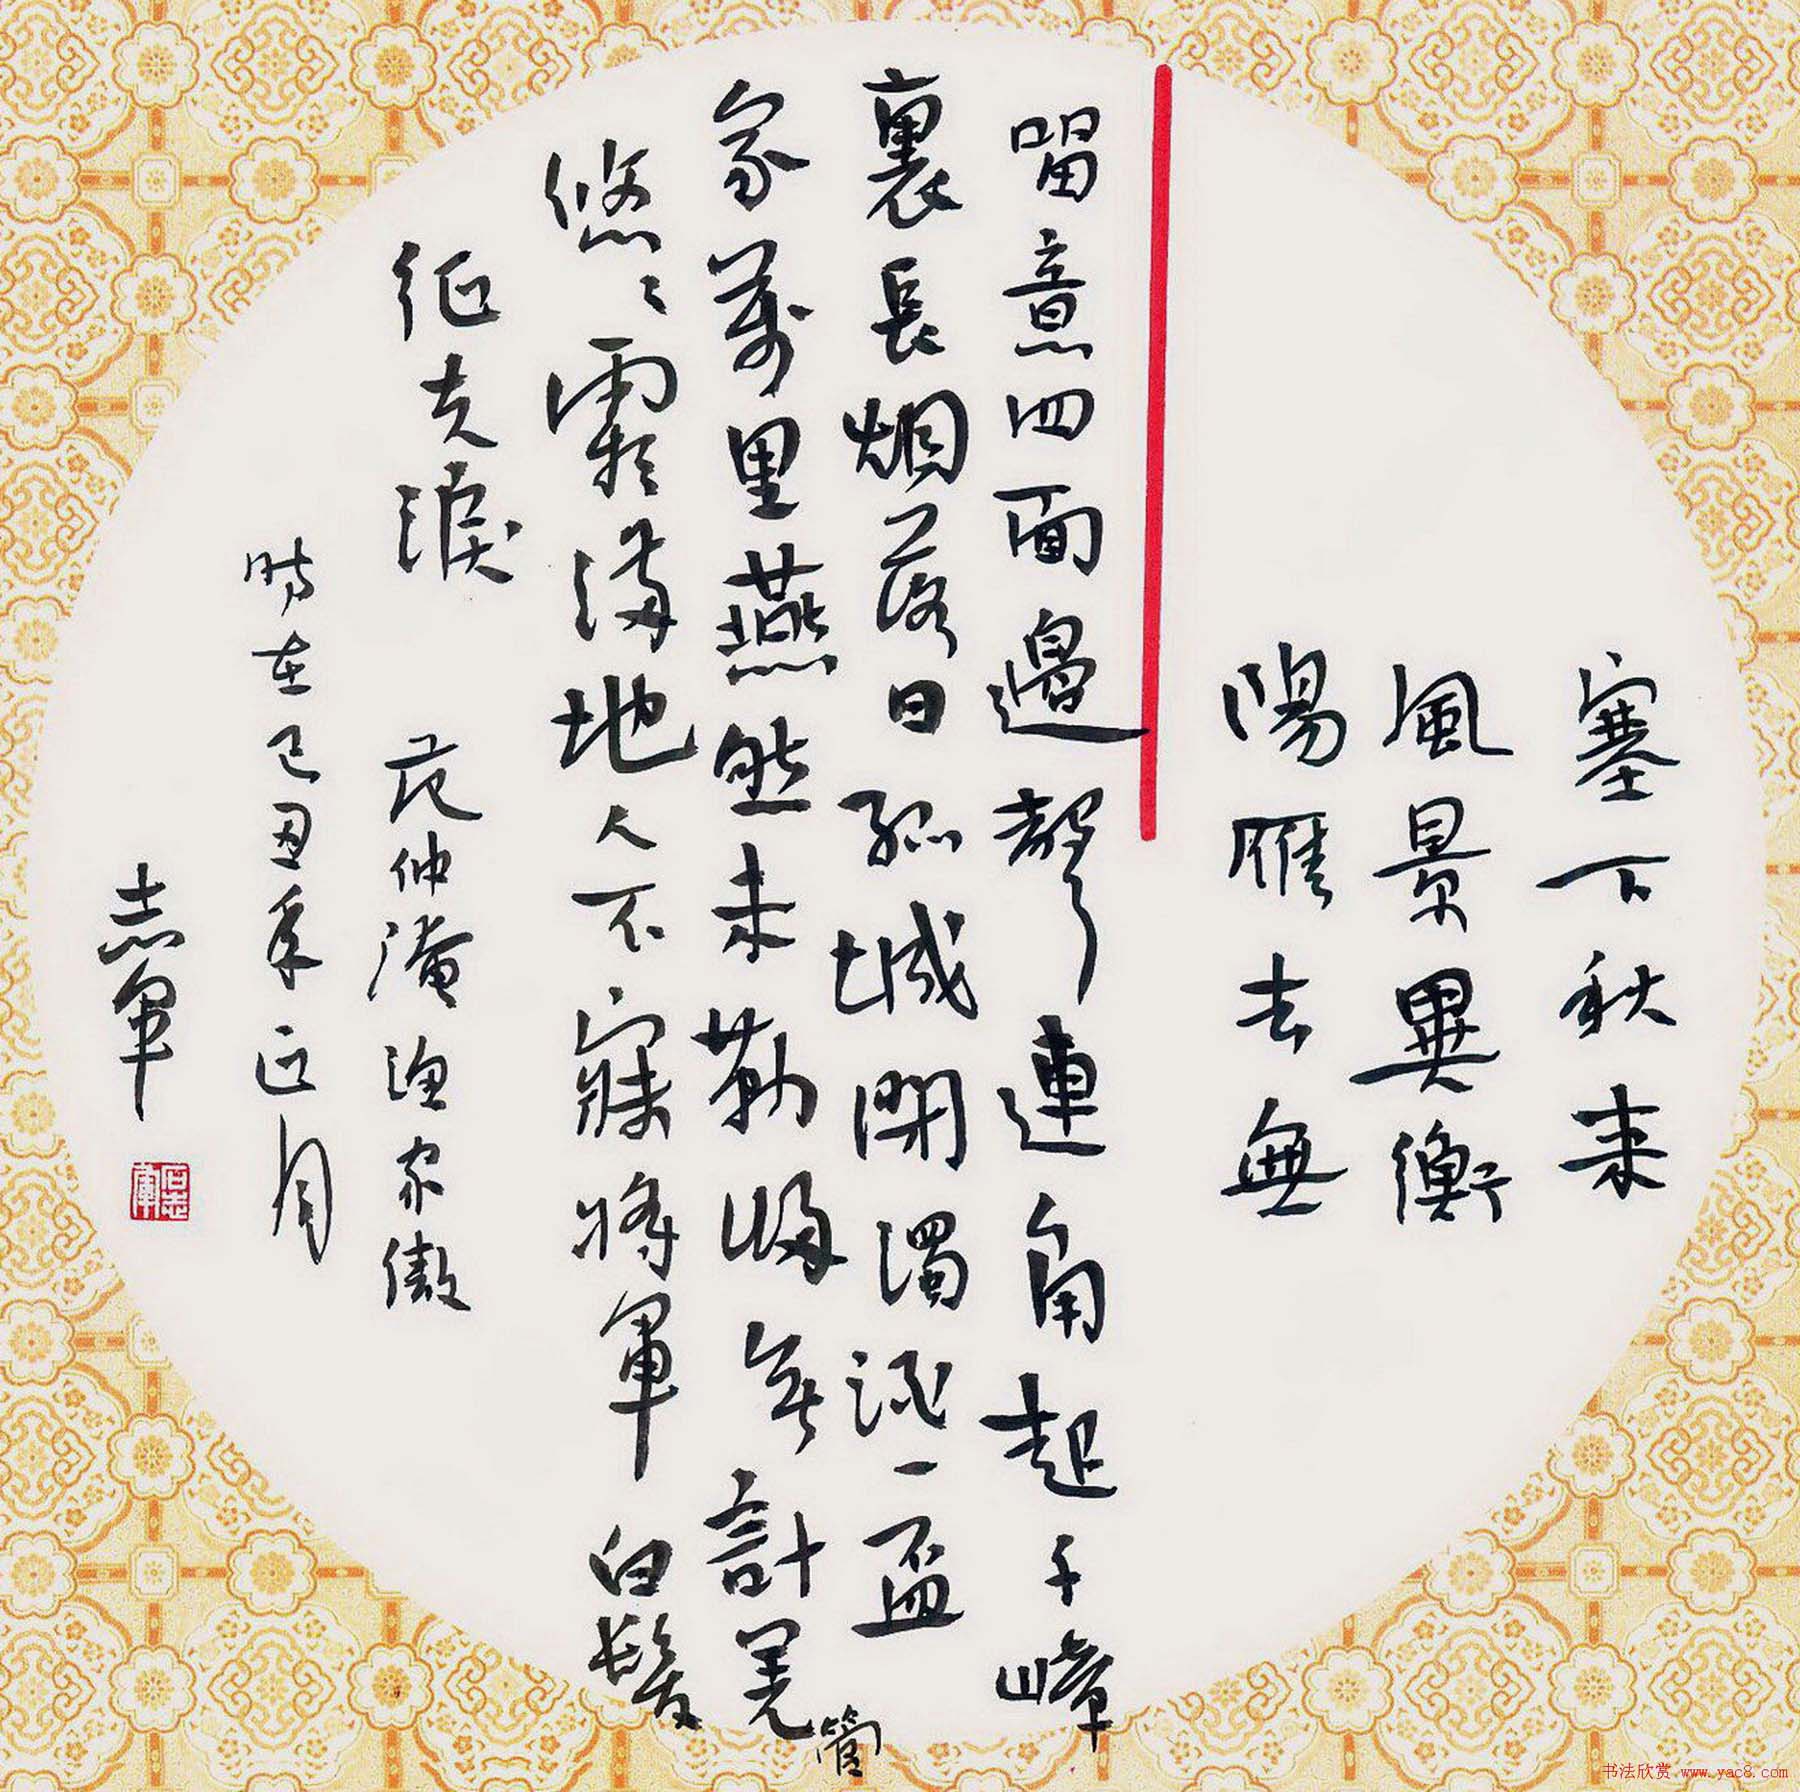 塞下秋来
風景異衡
陽雁去無
留意四面邊聲連角起千嶂
裏長烟落日孤城閉濁酒一盃
家萬里燕然未勒歸無計羌
管
悠々霜满地人不寐將軍白髮
征夫淚
范仲淹渔家傲
時在己丑年正月
志軍
石志軍
书法欣赏 www.yac8.com